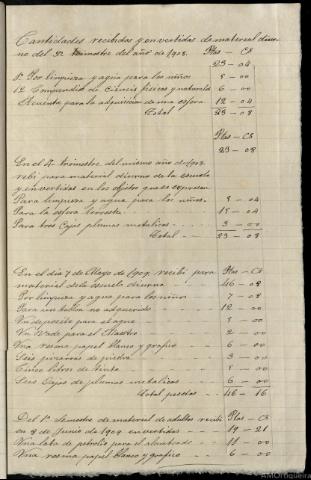 Cantidades recibidas y envertidas de material diur-
no del 3er trimestre del año de 1908. Ptas - Cs
23 - 04
Por limpieza y agua para los niños 5 - 00
12 Compendio de Ciencias fisicas y naturales 6 - 00
A cuenta para la adquisicion de una esfera 12 - 04
Total 23 - 08
Ptas - Cs
23 - 08
En el 4º trimestre del mismo año de 1908
recibi para material diurno de la escuela
y envertidas en los objetos que se expresan
Para limpieza y agua para los niños 5 - 04
Para la esfera terrestre 15 - 04
Para tres Cajas plumas metalicas 3 - 00
Total 23 - 08
En el dia 7 de Mayo de 1909 recibi para Ptas - Cs
material de la escuela diurna 46 - 08
Por limpieza y agua para los niños 7 - 08
Para un adquerido 12 - 00
Un deposito para el agua 5 - 00
Un para el Maestro 2 - 00
Una resma papel blanco y grafico 6 - 00
Seis pizarras de piedra 3 - 00
Cinco libros de tinta 5 - 00
Seis Cajas de plumas metalicas 6 - 00
Total pesetas 46 - 16
Del 1er Semestre de material de adultos recibi Ptas - Cs
en 8 de Junio de 1909 envertidas 19 - 21
Una lata de petrolio para el alumbrado 18 - 00
Una resma papel blanco y grafico 6 - 00
AMOrtigueira